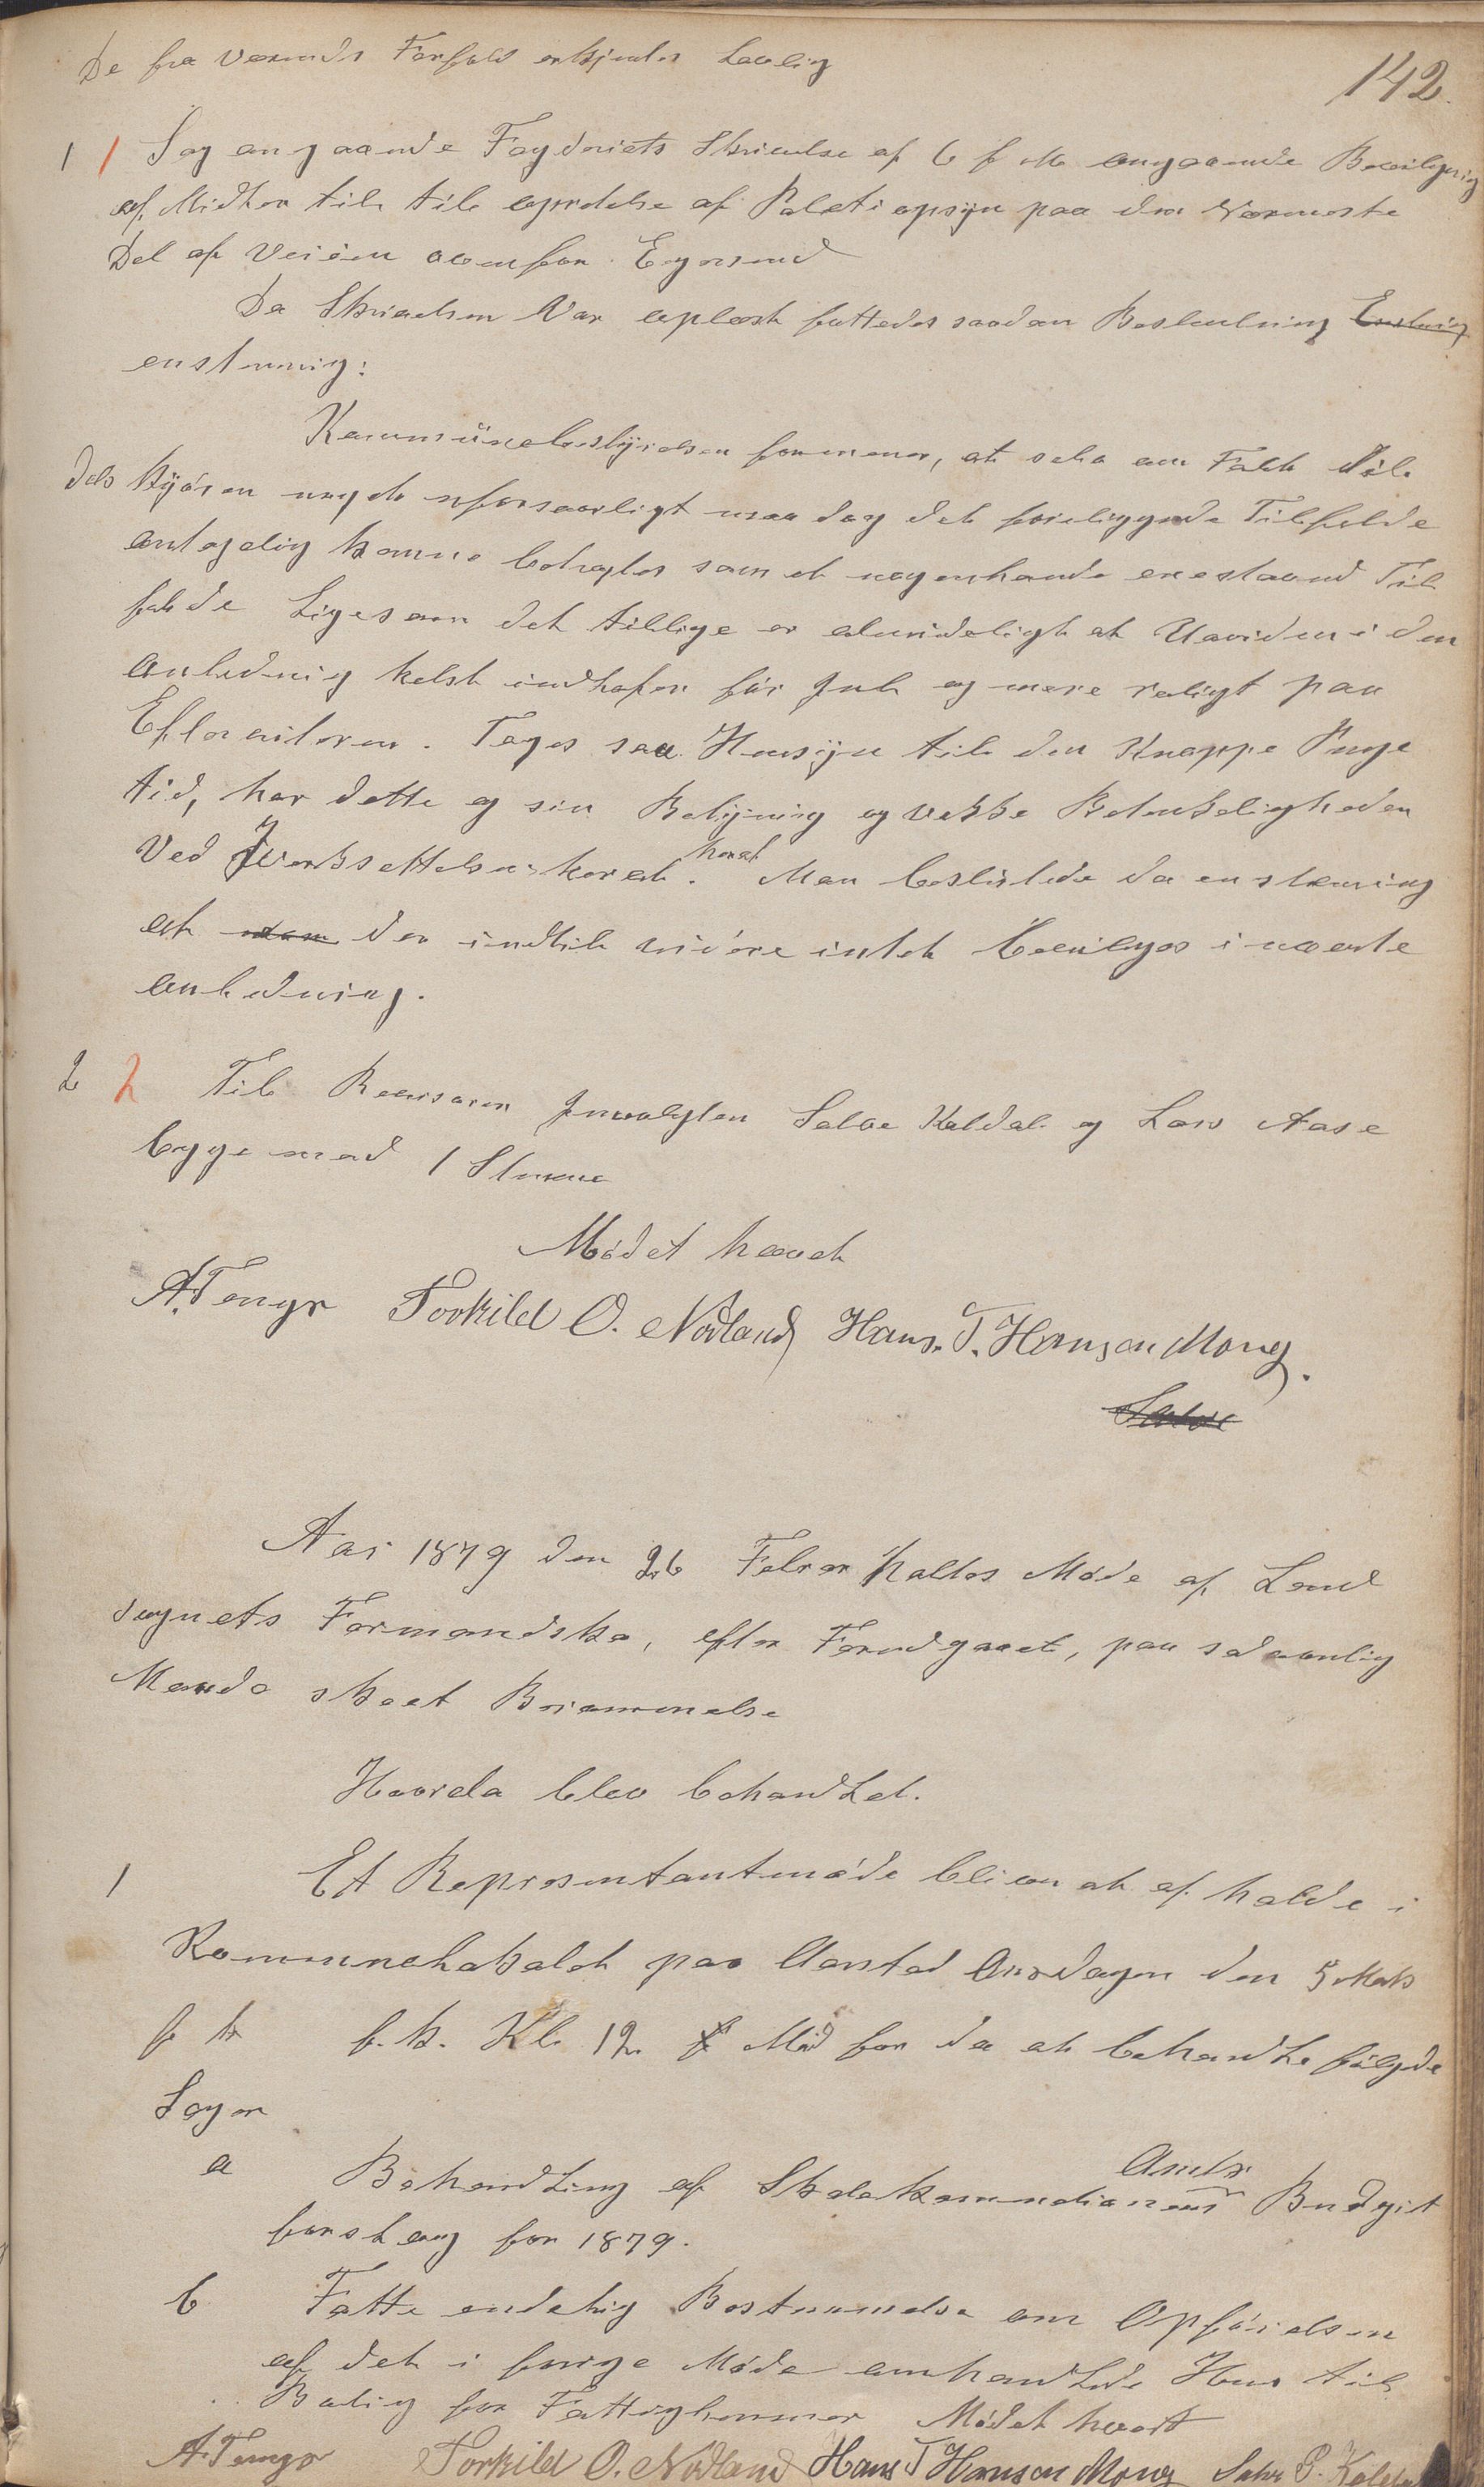 De fra værende Forfald erkjendes Lovlig
142.
1 1 Sag angaaende Fogderiets Skrivelse af 6 f M angaaende Bevilgning
af Midler til til oprdelse af Politiopsyn paa den Nærmeste
Del af Veien ovenfor Egersund
Da Skrivelsen Var oplæst fattedes saadan Beslutning
enstemmig:
Kommunebestyrelsen formener, at selv om Folk til
Dels Kjører noget uforsvarligt maa dog det foreliggende Tilfelde
antagelig kunne betragtes som et nogenlunde enestaaend Til
felde Ligesom det tillige er almindeligt at Uorden i den
anledning helst indtrefer før Jul og mere roligt paa
Eftervinteren. Tages saa Hensyn til den Knappe Penge
tid, har dette og sin Betydning og vekke Betenkeligheden
Ved Iverksettelsen heraf. Man besluttede da enstemmig
at der indtil videre intet bevilges i nævnte
anledning.
2 2 Til Revisorer Innvalgtes Salve Koldal og Lars Aase
begge med 1 Stemme
Mødet hævet
A. Tengs Torkild O. Nodland Hans. T. Hansen Mong.
Salve
Aar 1879 den 26 Febrar holdtes Møde af Land
sognets Formandska, efter Forudgaaet, paa sedvanlig
Maade skeet Berammelse
Hvorda blev behandlet.
1 Et Representantmøde bliver at af holde i
Kommunelokalet paa Aarstad Onsdagen den 5 Marts
f k f. k. Kl 12 Mid for da at behandle følgde
Sager
a Behandling af Skolekommissionens Amts Budgiet
forslag for 1879.
b Fatte endelig Bestemmelse om Opførelsen
af det i forige Møde omhandlede Hus til
Bolig for Fattiglemmer Mødet hævet
A. Tengs Torkild O. Nodland Hans T Hansen Mong Salve P. Koldal